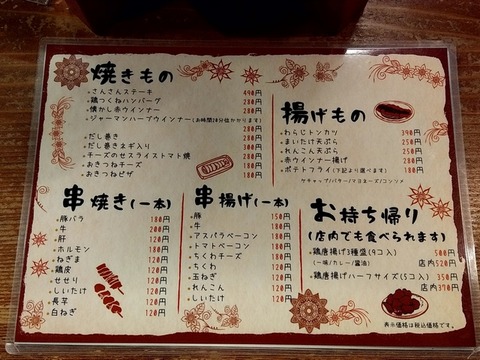 焼きもの
さんさんステーキ 490円
鶏つくねハンバーグ 280円
懐かし赤ウインナー 280円
ジャーマンハーブウインナー(お時間10分位かかります)
280円
だし巻き 280円
だし巻きネギ入り 300円
チーズのセスライストマト焼 280円
おきつねチーズ 180円
おきつねピザ 180円
揚げもの
わらじトンカツ 390円
まいたけ天ぷら 250円
れんこん天ぷら 250円
赤ウインナー揚げ 280円
ポテトフライ(下記より選べます) 180円
ケチャップ/バター/マヨネーズ/コンソメ
串焼き(一本)
豚バラ 180円
牛 200円
肝 120円
ホルモン 180円
ねぎま 120円
鶏皮 120円
せせり 150円
しいたけ 120円
長芋 120円
白ねぎ 120円
串揚げ(一本)
豚 150円
牛 180円
アスパラベーコン 180円
トマトベーコン 180円
ちくわチーズ 120円
ちくわ 120円
玉ねぎ 120円
れんこん 120円
しいたけ 120円
お持ち帰り
(店内でも食べられます)
鶏唐揚げ3種盛(9コ入) 500円
(一味/カレー/醤油) 店内520円
鶏唐揚げハーフサイズ(5コ入) 350円
店内370円
表示価格は税込価格です。